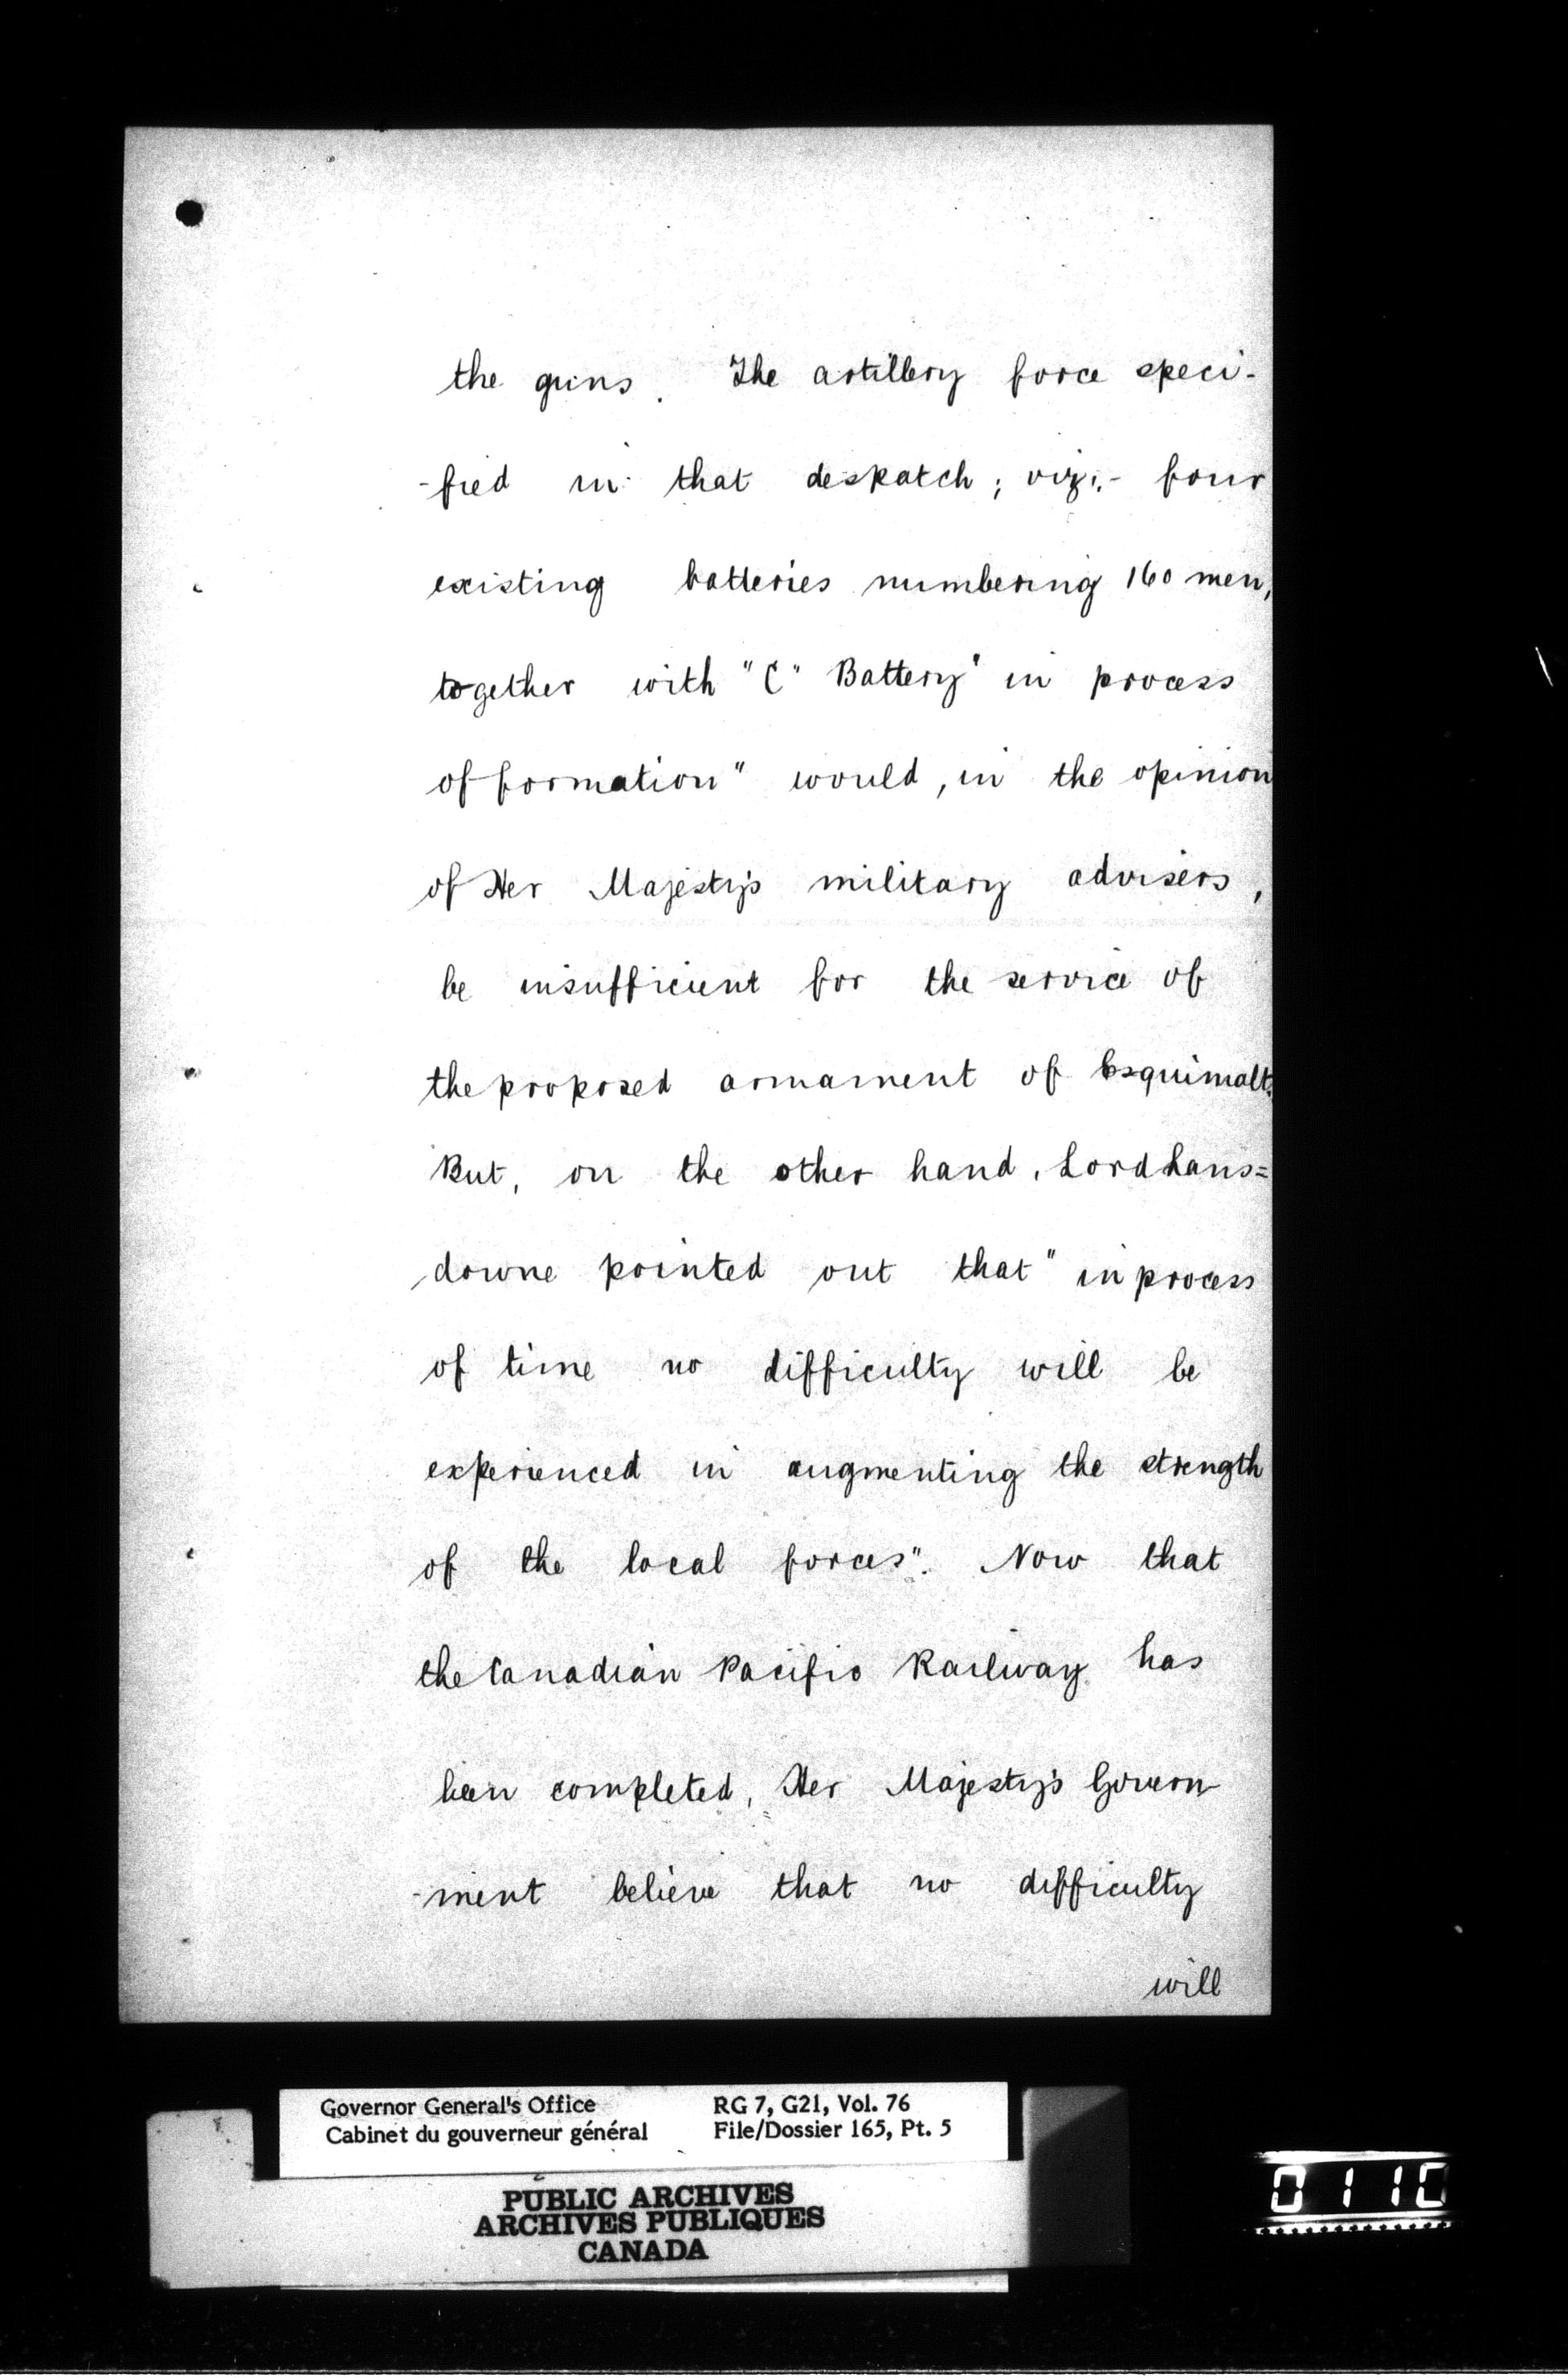 the guns. The artillery force speci-
-fied in that despatch; viz:- four
existing batteries numbering 160 men,
together with "C" Battery "in process
of formation" would, in the opinion
of Her Majesty's military advisers,
be insufficient for the service of
the proposed armament of Esquimalt.
But, on the other hand, Lord Lans=
downe pointed out that "in process
of time no difficulty will be
experienced in augmenting the strength
of the local forces". Now that
the Canadian Pacific Railway has
been completed, Her Majesty's Govern
-ment believe that no difficulty
will
Governor General's Office RG 7, G21, Vol. 76
Cabinet du gouverneur général File/Dossier 165, Pt. 5
PUBLIC ARCHIVES
ARCHIVES PUBLIQUES
CANADA
0110